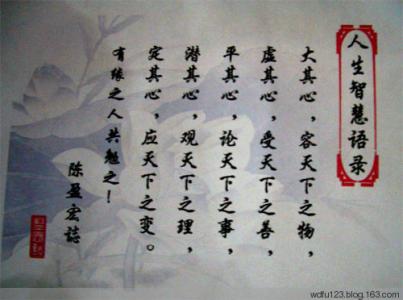 人生智慧语录
大其心，容天下之物，
虚其心，受天下之善，
平其心，论天下之事，
潜其心，观天下之理，
定其心，应天下之变。
有缘之人共勉之！
陈盈宏誌
wdfu123.blog.163.com